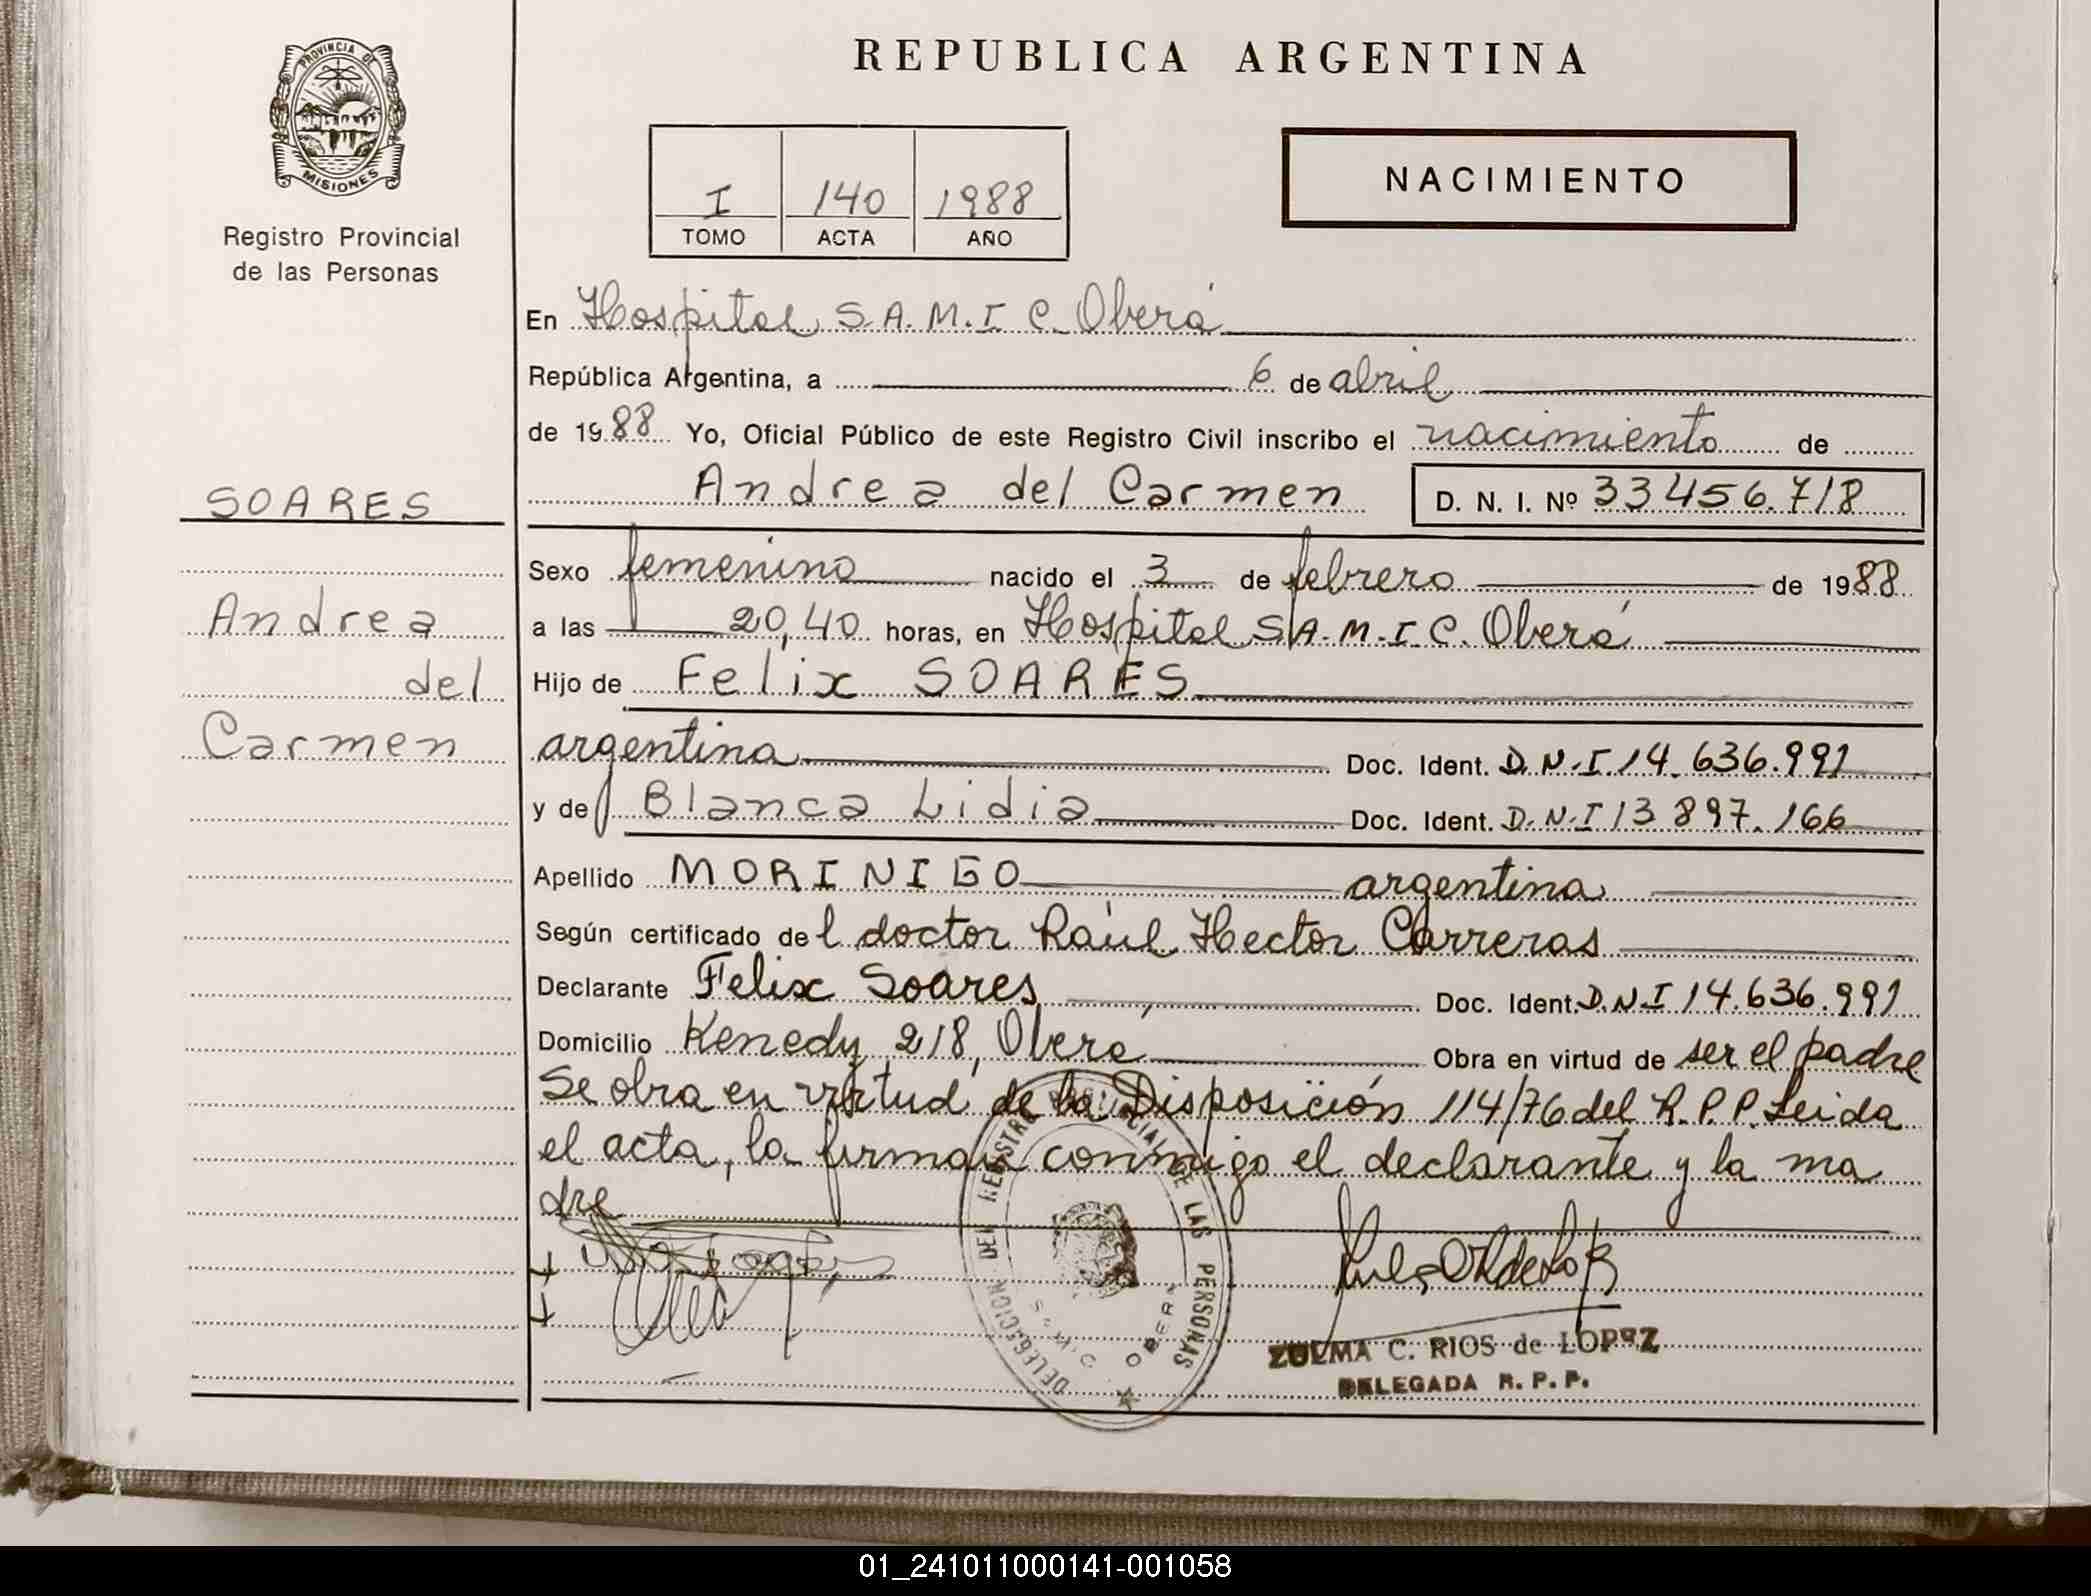 PROVINCIA DE
MISIONES
Registro Provincial
de las Personas
REPUBLICA ARGENTINA
I 140 1988
TOMO ACTA AÑO
NACIMIENTO
SOARES
Andrea
del
Carmen
En Hospital S.A.M.I.C. Oberá
República Argentina, a 6 de abril
de 1988 Yo, Oficial Público de este Registro Civil inscribo el nacimiento de
Andrea del Carmen D. N. I. Nº 33456.718
Sexo femenino nacido el 3 de febrero de 1988
a las 20,40 horas, en Hospital S.A.M.I.C. Oberá
Hijo de Felix SOARES
argentina Doc. Ident. D.N.I 14.636.991
y de Blanca Lidia Doc. Ident. D.N.I 13897.166
Apellido MORINIGO argentina
Según certificado del doctor Raúl Hector Carreras
Declarante Felix Soares, Doc. Ident. D.N.I 14.636.991
Domicilio Kenedy 218, Obera Obra en virtud de ser el padre
Se obra en virtud de la Disposición 114/76 del R.P.P. Leida
el acta, la firman conmigo el declarante y la ma
dre
DELEGACION DEL REGISTRO PROVINCIAL DE LAS PERSONAS
S.A.M.I.C. OBERA
ZULMA C. RIOS de LOPEZ
DELEGADA R. P. P.
01_241011000141-001058